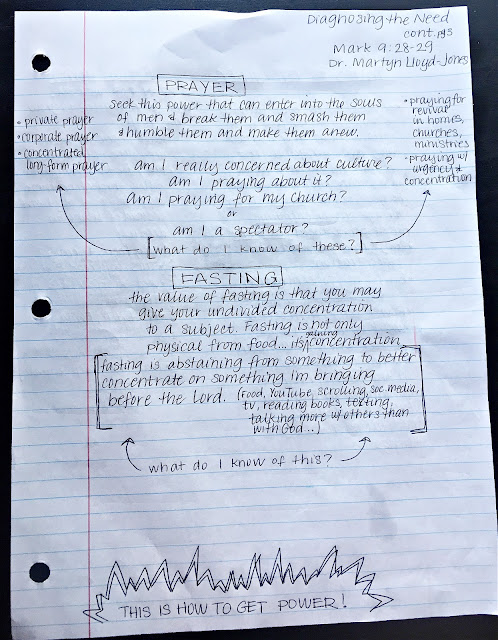 Diagnosing the Need
cont. pgs
Mark 9:28-29
Dr. Martyn Lloyd-Jones
PRAYER
seek this power that can enter into the souls
of men & break them and smash them
& humble them and make them anew.
• private prayer
• corporate prayer
• concentrated
long-form prayer
• praying for
revival
in homes,
churches,
ministries
• praying w/
urgency &
concentration
am I really concerned about culture?
am I praying about it?
am I praying for my church?
or
am I a spectator?
[what do I know of these?]
FASTING
the value of fasting is that you may
give your undivided concentration
to a subject. Fasting is not only
physical from food... its gaining concentration
fasting is abstaining from something to better
concentrate on something I'm bringing
before the Lord. (Food, YouTube, scrolling, soc media,
tv, reading books, texting,
talking more w/ others than
with God...)
what do I know of this?
THIS IS HOW TO GET POWER!